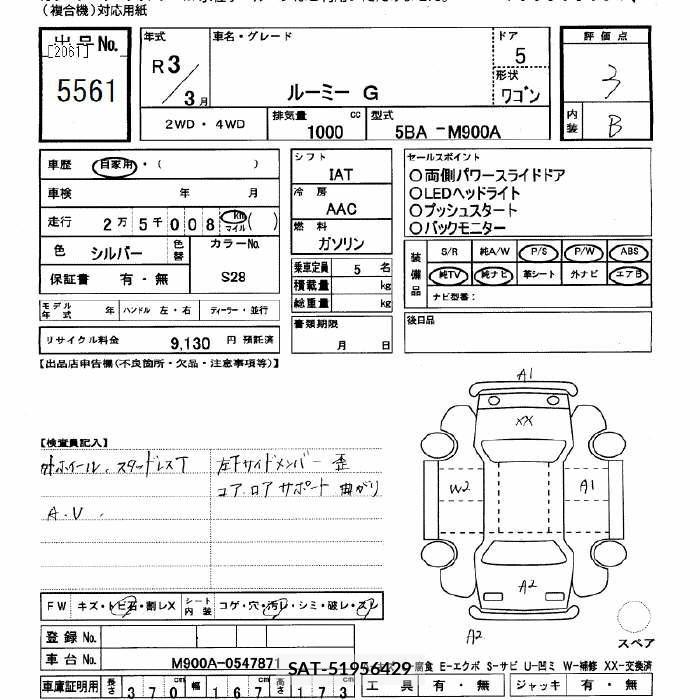 （複合機）対応用紙
出品No.
[2061]
5561
年式 R3／3月
車名・グレード ルーミー G
ドア 5
形状 ワゴン
評価点 3
内装 B
2WD・4WD
排気量 1000 cc
型式 5BA -M900A
車歴 自家用・( )
車検 年 月
走行 2万5千008 km マイル ( )
色 シルバー 色替
カラーNo. S28
保証書 有・無
モデル年式 年 ハンドル 左・右 ディーラー・並行
リサイクル料金 9,130 円 預託済
シフト IAT
冷房 AAC
燃料 ガソリン
乗車定員 5 名
積載量 kg
総重量 kg
書類期限 月 日
セールスポイント
○両側パワースライドドア
○LEDヘッドライト
○プッシュスタート
○バックモニター
装備品 S/R 純A/W P/S P/W ABS
純TV 純ナビ 革シート 外ナビ エアB
ナビ型番：
後日品
【出品店申告欄(不良箇所・欠品・注意事項等)】
【検査員記入】
外ホイール、スタッドレスT
A.V.
左下サイドメンバー 歪
コア.ロアサポート 曲がり
A1
XX
W2
A1
A2
A2
スペア
FW キズ・トビ石・割レX シート内装 コゲ・穴・汚レ・シミ・破レ・スレ
登録No.
車台No. M900A-0547871
SAT-51956429
腐食 E-エクボ S-サビ U-凹ミ W-補修 XX-交換済
車庫証明用 長さ 370cm 幅 167cm 高さ 173cm
工具 有・無 ジャッキ 有・無